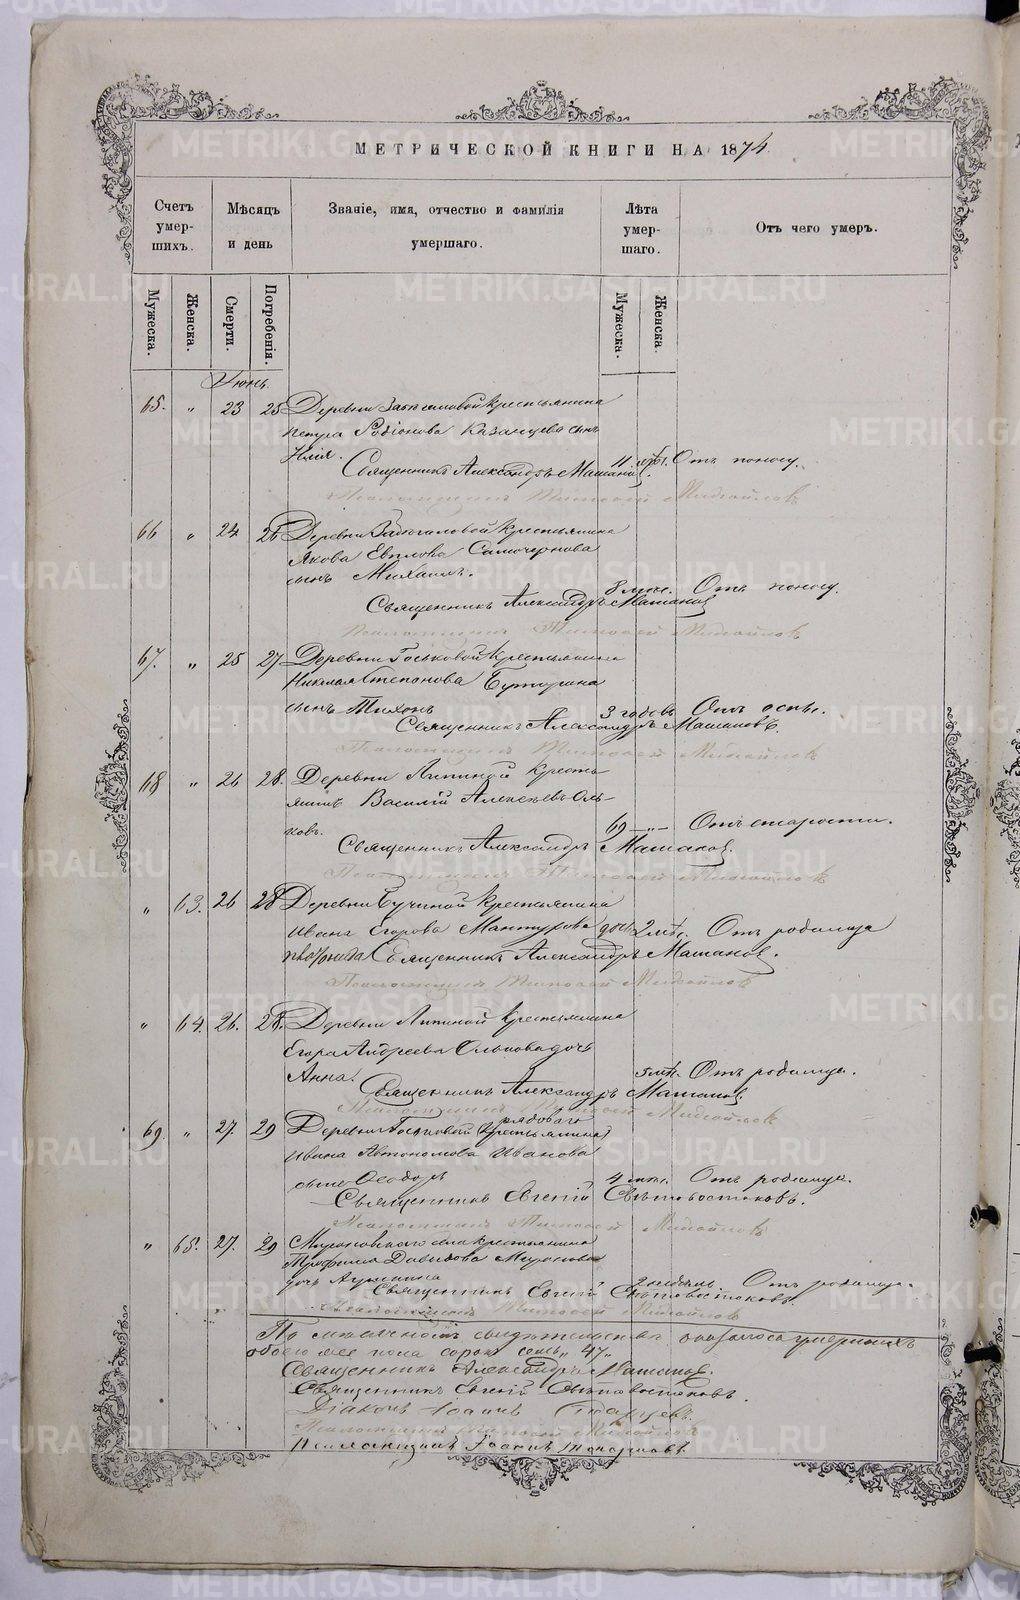 МЕТРИЧЕСКОЙ КНИГИ НА 1874
Счетъ умер- шихъ.
Мѣсяцъ и день
Званіе, имя, отчество и фамилія умершаго.
Лѣта умер- шаго.
Отъ чего умеръ.
Мужеска.
Женска.
Смерти.
Погребенія.
Мужеска.
Женска.
Іюнь.
65. " 23 25 Деревни крестьянина
Петра Родіонова Казанцева сынъ
Илія. 11 мѣс. Отъ поносу.
Священникъ Александръ Машановъ.
Псаломщикъ Тимофей Михайловъ
66 " 24 26 Деревни крестьянина
Якова Евплова Самочернова
сынъ Михаилъ. 8 мѣс. Отъ поносу.
Священникъ Александръ Машановъ
Псаломщикъ Тимофей Михайловъ
67. " 25 27 Деревни Госьковой крестьянина
Николая Степанова
сынъ Тихонъ 3 годовъ Отъ оспы.
Священникъ Александръ Машановъ.
Псаломщикъ Тимофей Михайловъ
68 " 26 28. Деревни Липиной кресть
янинъ Василій Алексѣевъ Оль-
ковъ. 69 — " — Отъ старости.
Священникъ Александръ Машановъ.
Псаломщикъ Тимофей Михайловъ
" 63. 26 28 Деревни Бучиной крестьянина
Ивана Егорова Мантурова дочь 2 мѣс. Отъ родимца
Священникъ Александръ Машановъ.
Псаломщикъ Тимофей Михайловъ
" 64. 26. 28. Деревни Липиной крестьянина
Егора Андреева Олькова дочь
Анна. 3 мѣс. Отъ родимца.
Священникъ Александръ Машановъ
Псаломщикъ Тимофей Михайловъ
рядоваго
69. " 27. 29 Деревни Госьковой (крестьянина)
Ивана Автономова Иванова
сынъ Ѳеодоръ 4 мѣс. Отъ родимца.
Священникъ Евгеній Свѣтовостоковъ.
Псаломщикъ Тимофей Михайловъ
" 65. 27. 29 Мироновскаго села крестьянина
Трофима Давыдова Миронова
дочь 2 недѣль. Отъ родимца.
Священникъ Евгеній Свѣтовостоковъ.
Псаломщикъ Тимофей Михайловъ
По мѣсячной оказалось умершихъ
обоего пола сорокъ семь „47„
Священникъ Александръ Машановъ.
Священникъ Евгеній Свѣтовостоковъ.
Діаконъ Іоаннъ
Псаломщикъ Тимофей Михайловъ
Псаломщикъ Іоаннъ Топорковъ
METRIKI.GASO-URAL.RU